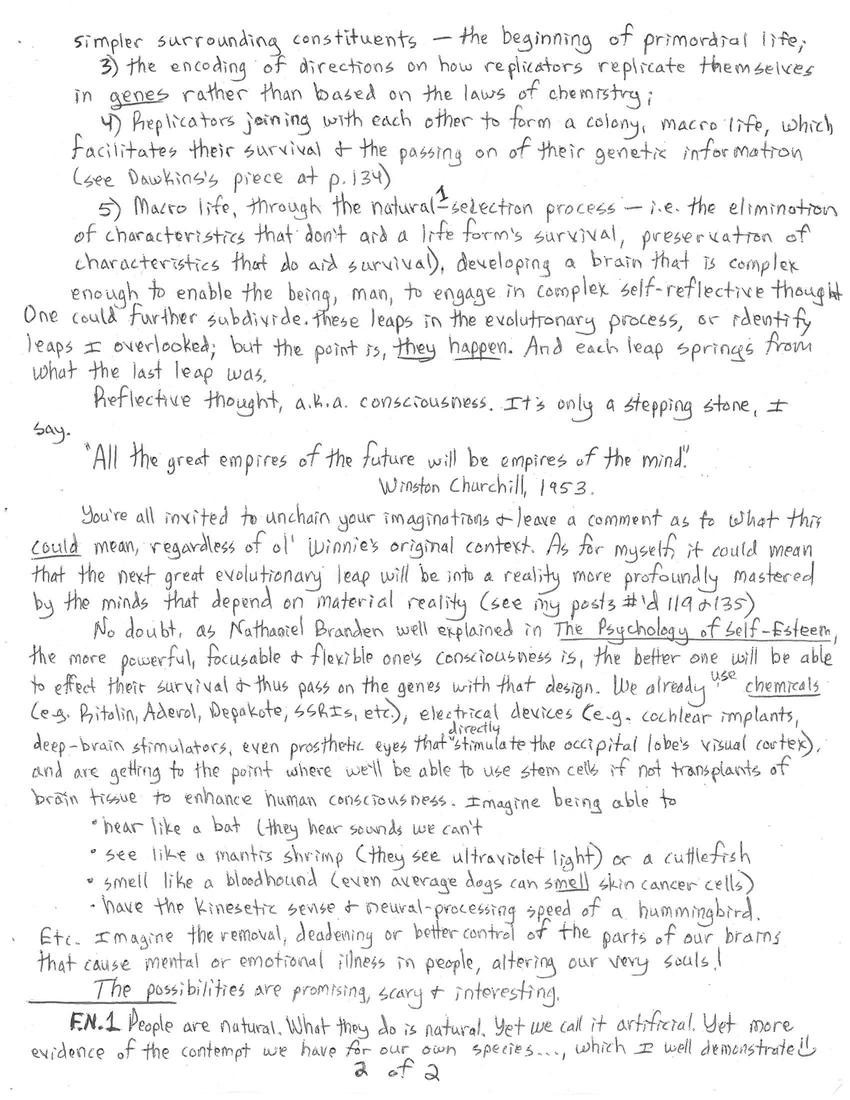 simpler surrounding constituents — the beginning of primordial life;
3) the encoding of directions on how replicators replicate themselves
in genes rather than based on the laws of chemistry;
4) Replicators joining with each other to form a colony, macro life, which
facilitates their survival & the passing on of their genetic information
(see Dawkins's piece at p.134)
5) Macro life, through the natural¹-selection process — i.e. the elimination
of characteristics that don't aid a life form's survival, preservation of
characteristics that do aid survival), developing a brain that is complex
enough to enable the being, man, to engage in complex self-reflective thought
One could further subdivide these leaps in the evolutionary process, or identify
leaps I overlooked; but the point is, they happen. And each leap springs from
what the last leap was.
Reflective thought, a.k.a. consciousness. It's only a stepping stone, I
say.
"All the great empires of the future will be empires of the mind."
Winston Churchill, 1953.
You're all invited to unchain your imaginations & leave a comment as to what this
could mean, regardless of ol' Winnie's original context. As for myself, it could mean
that the next great evolutionary leap will be into a reality more profoundly mastered
by the minds that depend on material reality (see my posts #'d 119 & 135)
No doubt, as Nathaniel Branden well explained in The Psychology of Self-Esteem,
the more powerful, focusable & flexible one's consciousness is, the better one will be able
to effect their survival & thus pass on the genes with that design. We already use chemicals
(e.g. Ritalin, Aderol, Depakote, SSRIs, etc), electrical devices (e.g. cochlear implants,
deep-brain stimulators, even prosthetic eyes that directly stimulate the occipital lobe's visual cortex),
and are getting to the point where we'll be able to use stem cells if not transplants of
brain tissue to enhance human consciousness. Imagine being able to
• hear like a bat (they hear sounds we can't
• see like a mantis shrimp (they see ultraviolet light) or a cuttlefish
• smell like a bloodhound (even average dogs can smell skin cancer cells)
• have the kinesetic sense & neural-processing speed of a hummingbird.
Etc. Imagine the removal, deadening or better control of the parts of our brains
that cause mental or emotional illness in people, altering our very souls!
The possibilities are promising, scary & interesting.
F.N.1 People are natural. What they do is natural. Yet we call it artificial. Yet more
evidence of the contempt we have for our own species..., which I well demonstrate!
2 of 2